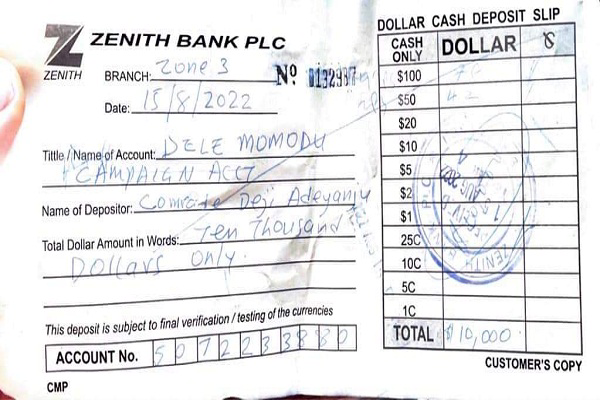 ZENITH BANK PLC
ZENITH
BRANCH: Zone 3
Nº
Date: 15/8/2022
Tittle / Name of Account: DELE MOMODU
CAMPAIGN ACCT
Name of Depositor: Comrade Deji Adeyanju
Total Dollar Amount in Words: Ten Thousand
Dollars only
This deposit is subject to final verification / testing of the currencies
ACCOUNT No. 5072233880
CMP
DOLLAR CASH DEPOSIT SLIP
CASH ONLY DOLLAR
$100
$50
$20
$10
$5
$2
$1
25C
10C
5C
1C
TOTAL $10,000
CUSTOMER'S COPY
ZENITH